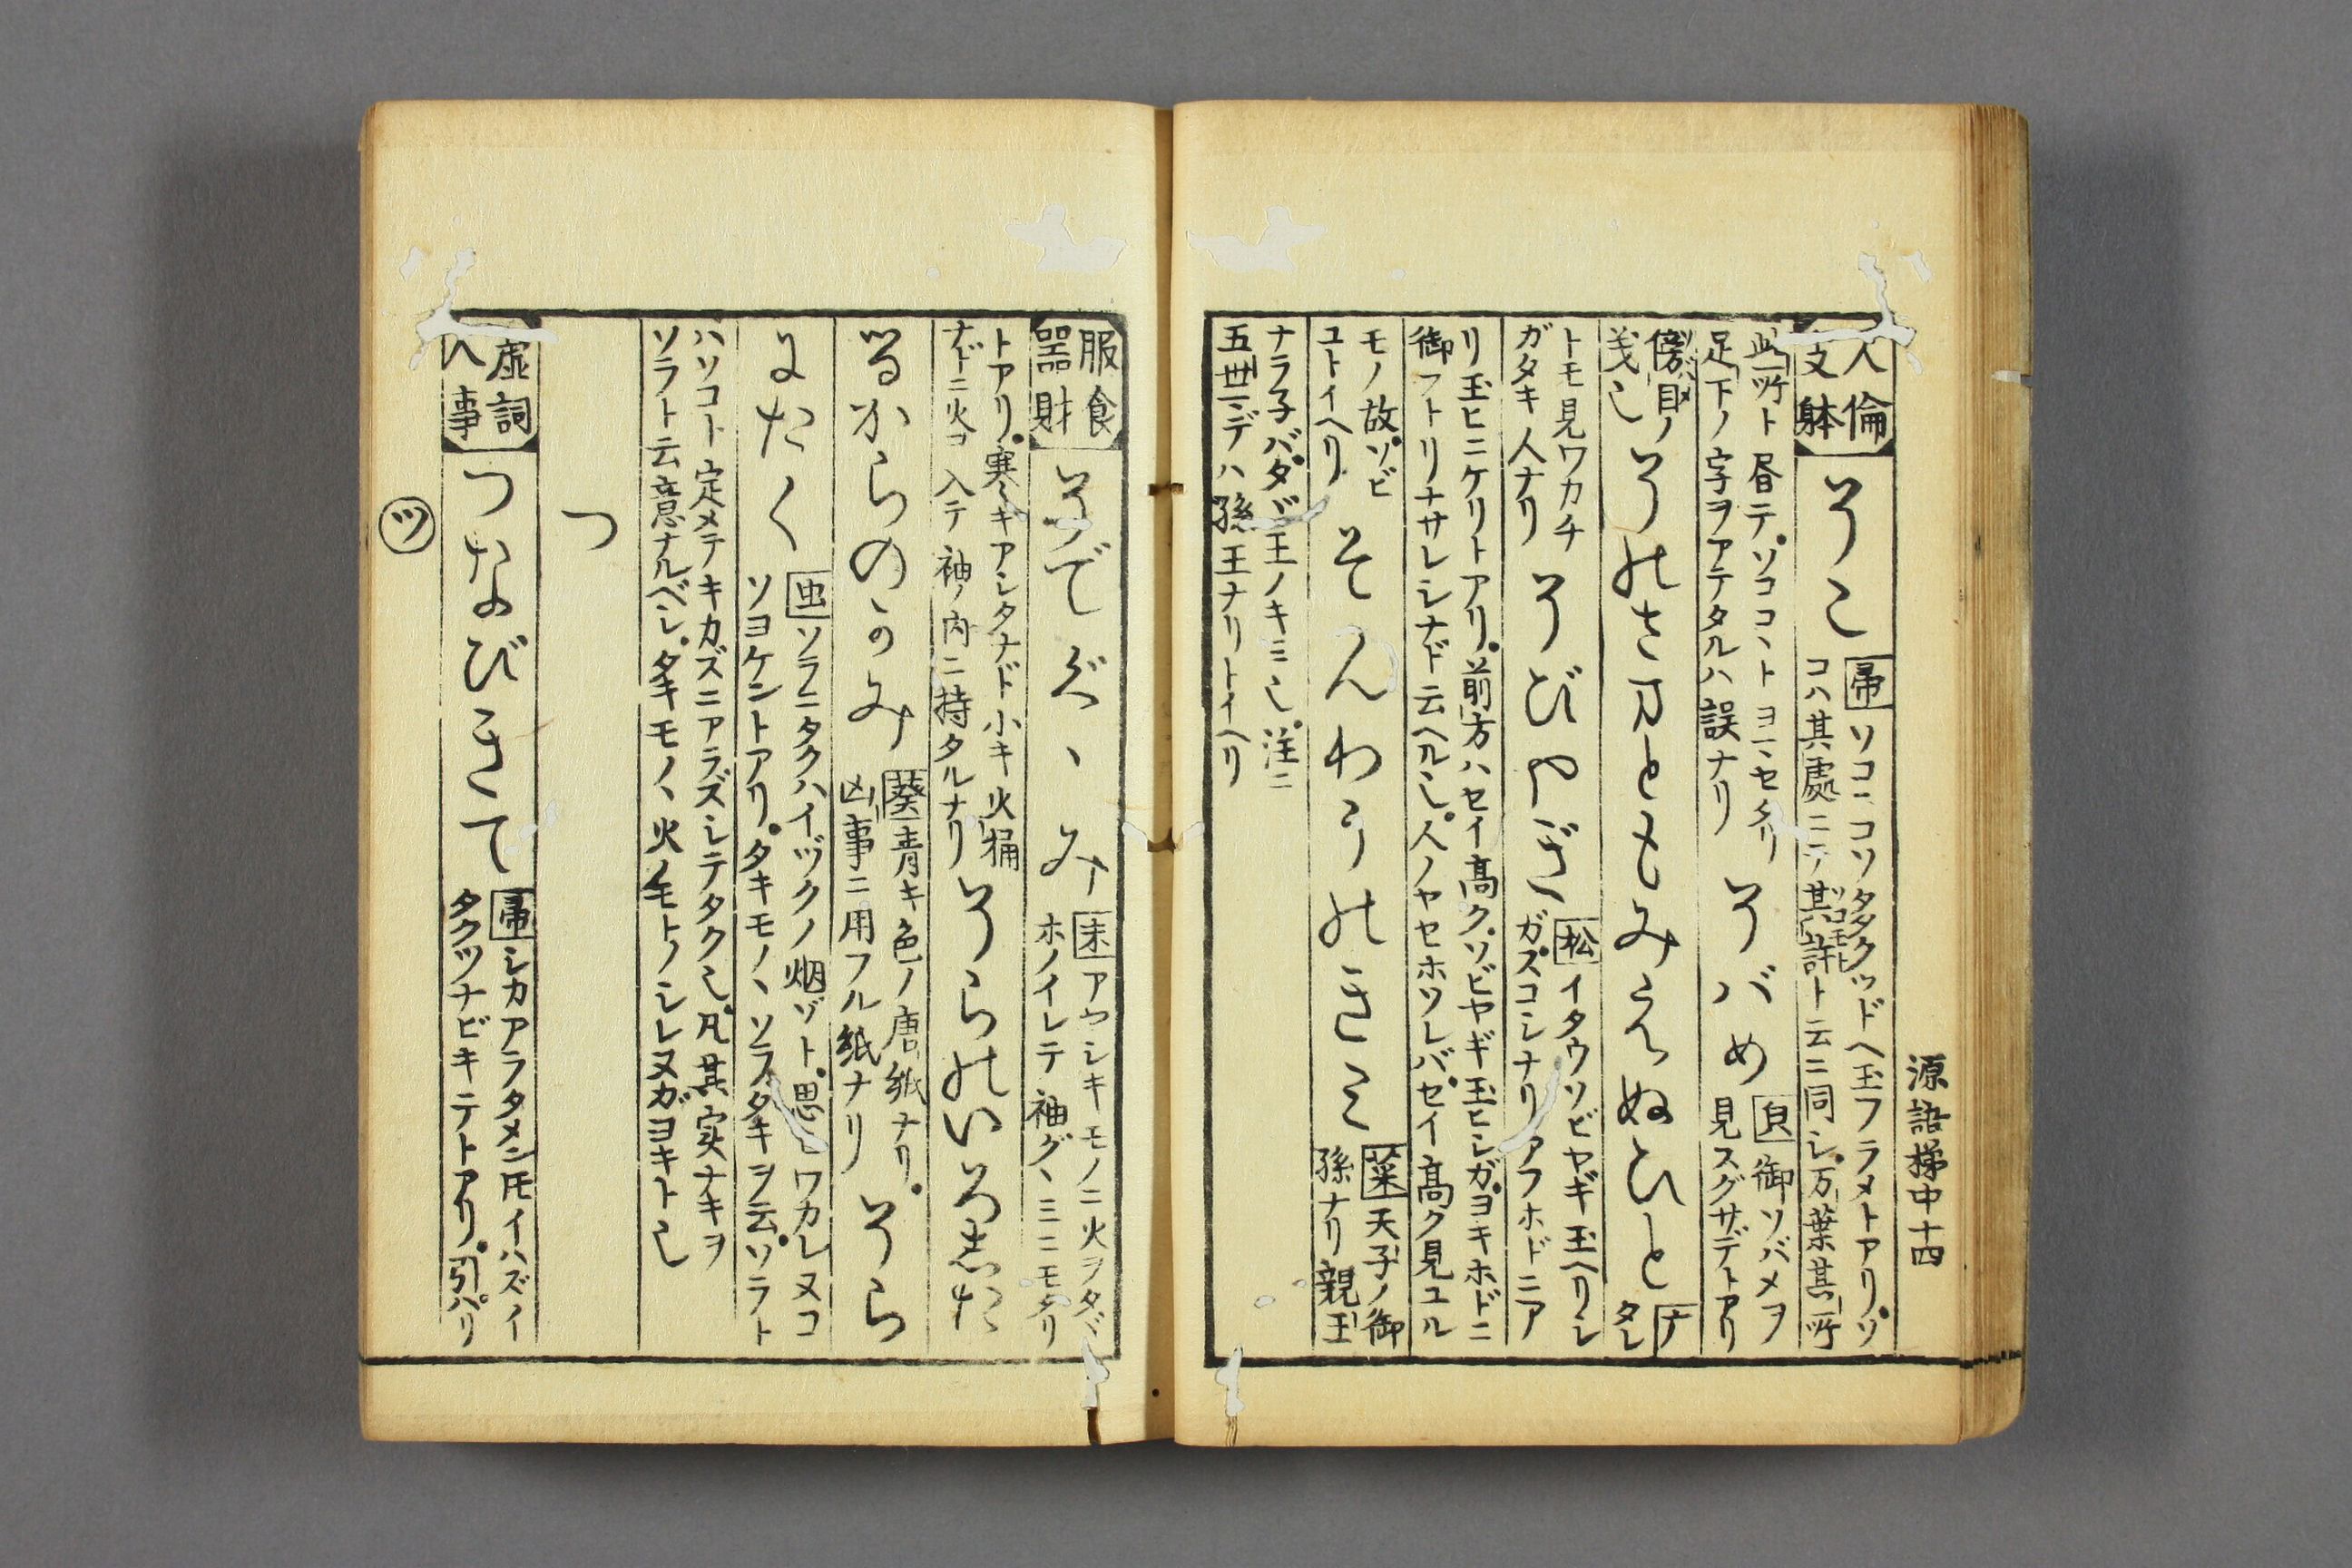 源語梯中十四
人倫
支躰
そこ
帚 ソコニコソ多クツドヘ玉フラメトアリ。ソ
コハ其處ニテ其許ト云ニ同シ。万葉其所
此所ト昏テ。ソココヽトヨマセタリ
足下ノ字ヲアテタルハ誤ナリ
そバめ
貝 御ソバメヲ
見スグサデトアリ
傍目ノ
浅し
そのさまともみえぬひと
ナ
タレ
トモ見ワカチ
ガタキ人ナリ
そびやぎ
松 イタウソビヤギ玉ヘリシ
ガ。スコシナリアフホドニア
リ玉ヒニケリトアリ。前方ハセイ高ク。ソビヤギ玉ヒシガ。ヨキホドニ
御フトリナサレシナド云ヘル也。人ノヤセホソレバ。セイ高ク見ユル
モノ故。ソビ
ユトイヘリ
そんわうのきミ
菜 天子ノ御
孫ナリ親王
ナラ子バ。タヾ王ノキミ也。注ニ
五世マデハ孫王ナリトイヘリ
服食
器財
そでぐゝみ
末 アヤシキモノニ火ヲタヾ
ホノイレテ袖グヽミニモタリ
トアリ。寒キアシタナド小キ火桶
ナドニ火ヲ入テ袖ノ内ニ持タルナリ
そらのいろした
るからのかみ
葵 青キ色ノ唐紙ナリ。
凶事ニ用フル紙ナリ
そら
にたく
虫 ソラニタクハイヅクノ烟ゾト。思ヒワカレヌコ
ソヨケントアリ。タキモノヽソラタキヲ云。ソラト
ハソコト定メテキカズニアラズシテタク也。凡其実ナキヲ
ソラト云意ナルベシ。タキモノヽ火ノモトノシレヌガヨキト也
つ
虚詞
人事
つなびきて
帚 シカアラタメン𪜈イハズイ
タクツナビキテトアリ。引パリ
ツ